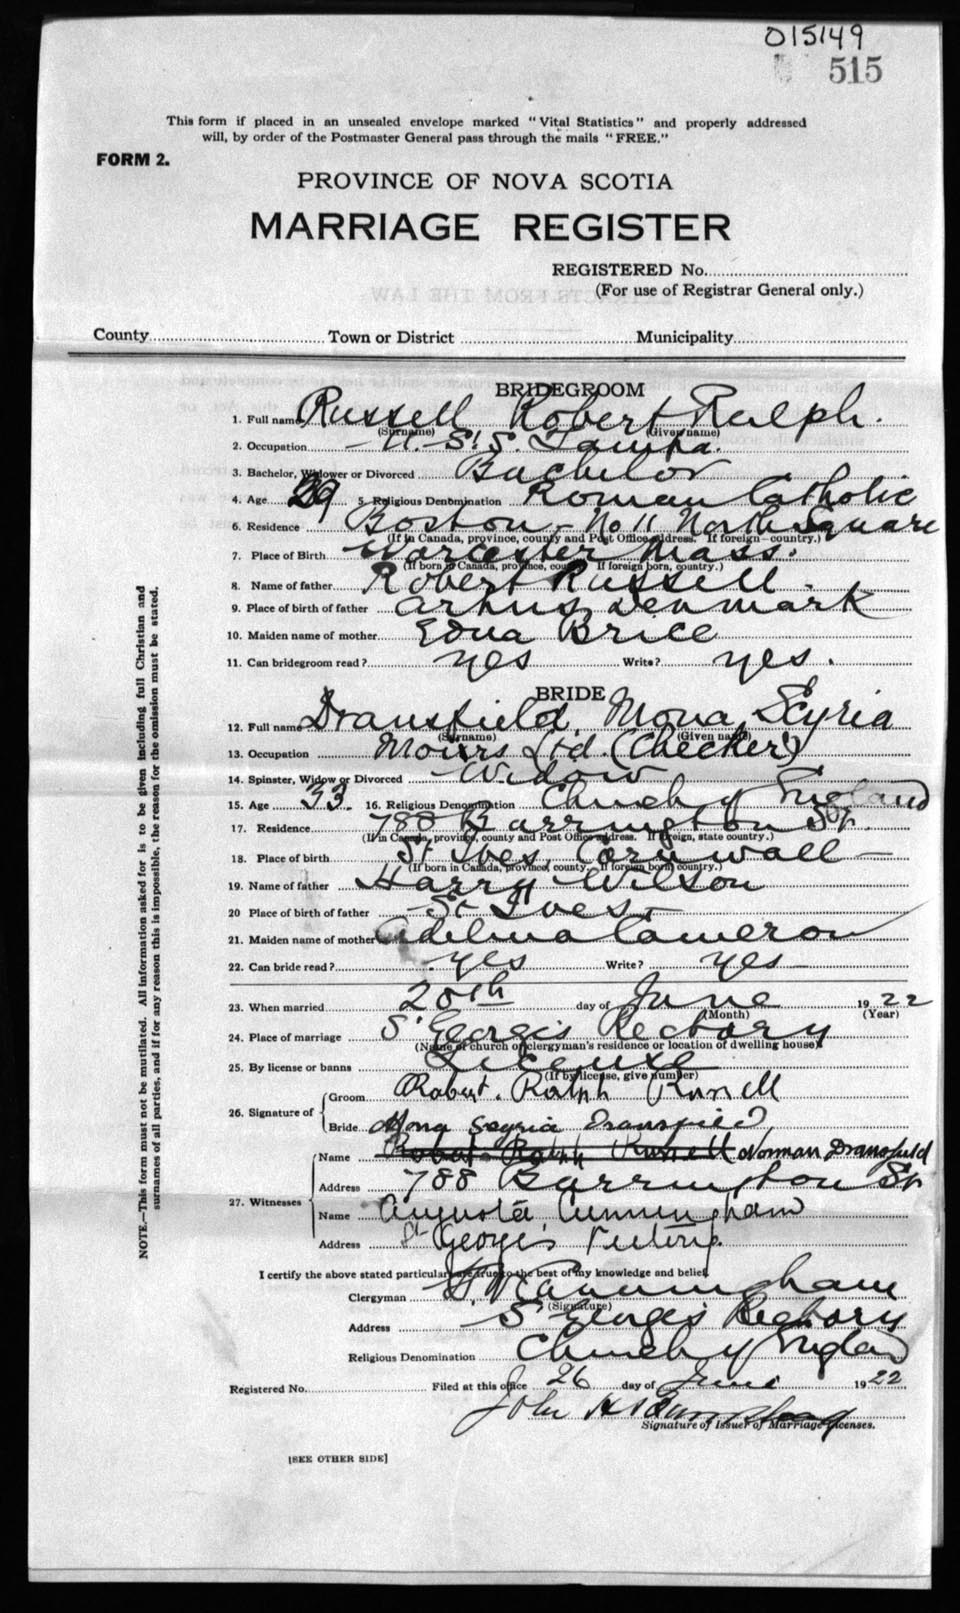 015149
515
This form if placed in an unsealed envelope marked "Vital Statistics" and properly addressed
will, by order of the Postmaster General pass through the mails "FREE."
FORM 2.
PROVINCE OF NOVA SCOTIA
MARRIAGE REGISTER
REGISTERED No.
(For use of Registrar General only.)
County Town or District Municipality
BRIDEGROOM
1. Full name Russell Robert Ralph.
(Surname) (Given name)
2. Occupation - U.S.S. Tampa.
3. Bachelor, Widower or Divorced Bachelor
4. Age 29 5. Religious Denomination Roman Catholic
6. Residence Boston - No 11 North Square
(If in Canada, province, county and Post Office address. If foreign-country.)
7. Place of Birth Worcester Mass.
(If born in Canada, province, county. If foreign born, country.)
8. Name of father Robert Russell.
9. Place of birth of father Arhus, Denmark
10. Maiden name of mother Edna Brice
11. Can bridegroom read? yes Write? yes.
BRIDE
12. Full name Dransfield Mona Seyria
(Surname) (Given name)
13. Occupation Moirs Ltd (Checker)
14. Spinster, Widow or Divorced Widow
15. Age 33. 16. Religious Denomination Church of England
17. Residence 788 Barrington St.
(If in Canada, province, county and Post Office address. If foreign, state country.)
18. Place of birth St Ives, Cornwall -
(If born in Canada, province, county. If foreign born, country.)
19. Name of father Harry Wilson
20 Place of birth of father - St Ives -
21. Maiden name of mother Adelina Cameron
22. Can bride read? yes Write? yes
23. When married 20th day of June 1922
(Month) (Year)
24. Place of marriage St Georges Rectory
(Name of church or clergyman's residence or location of dwelling house)
25. By license or banns License
(If by license, give number)
26. Signature of Groom Robert. Ralph Russell
Bride Mona Seyria Dransfield
27. Witnesses Name Robert Ralph Russell Norman Dransfield
Address 788 Barrington St.
Name Augusta Cunningham
Address St Georges Rectory.
I certify the above stated particulars are true to the best of my knowledge and belief.
Clergyman Cunningham
(Signature)
Address St Georges Rectory
Religious Denomination Church of England
Registered No. Filed at this office 26 day of June 1922
John
Signature of Issuer of Marriage Licenses.
[SEE OTHER SIDE]
NOTE.—This form must not be mutilated. All information asked for is to be given including full Christian and
surnames of all parties, and if for any reason this is impossible, the reason for the omission must be stated.